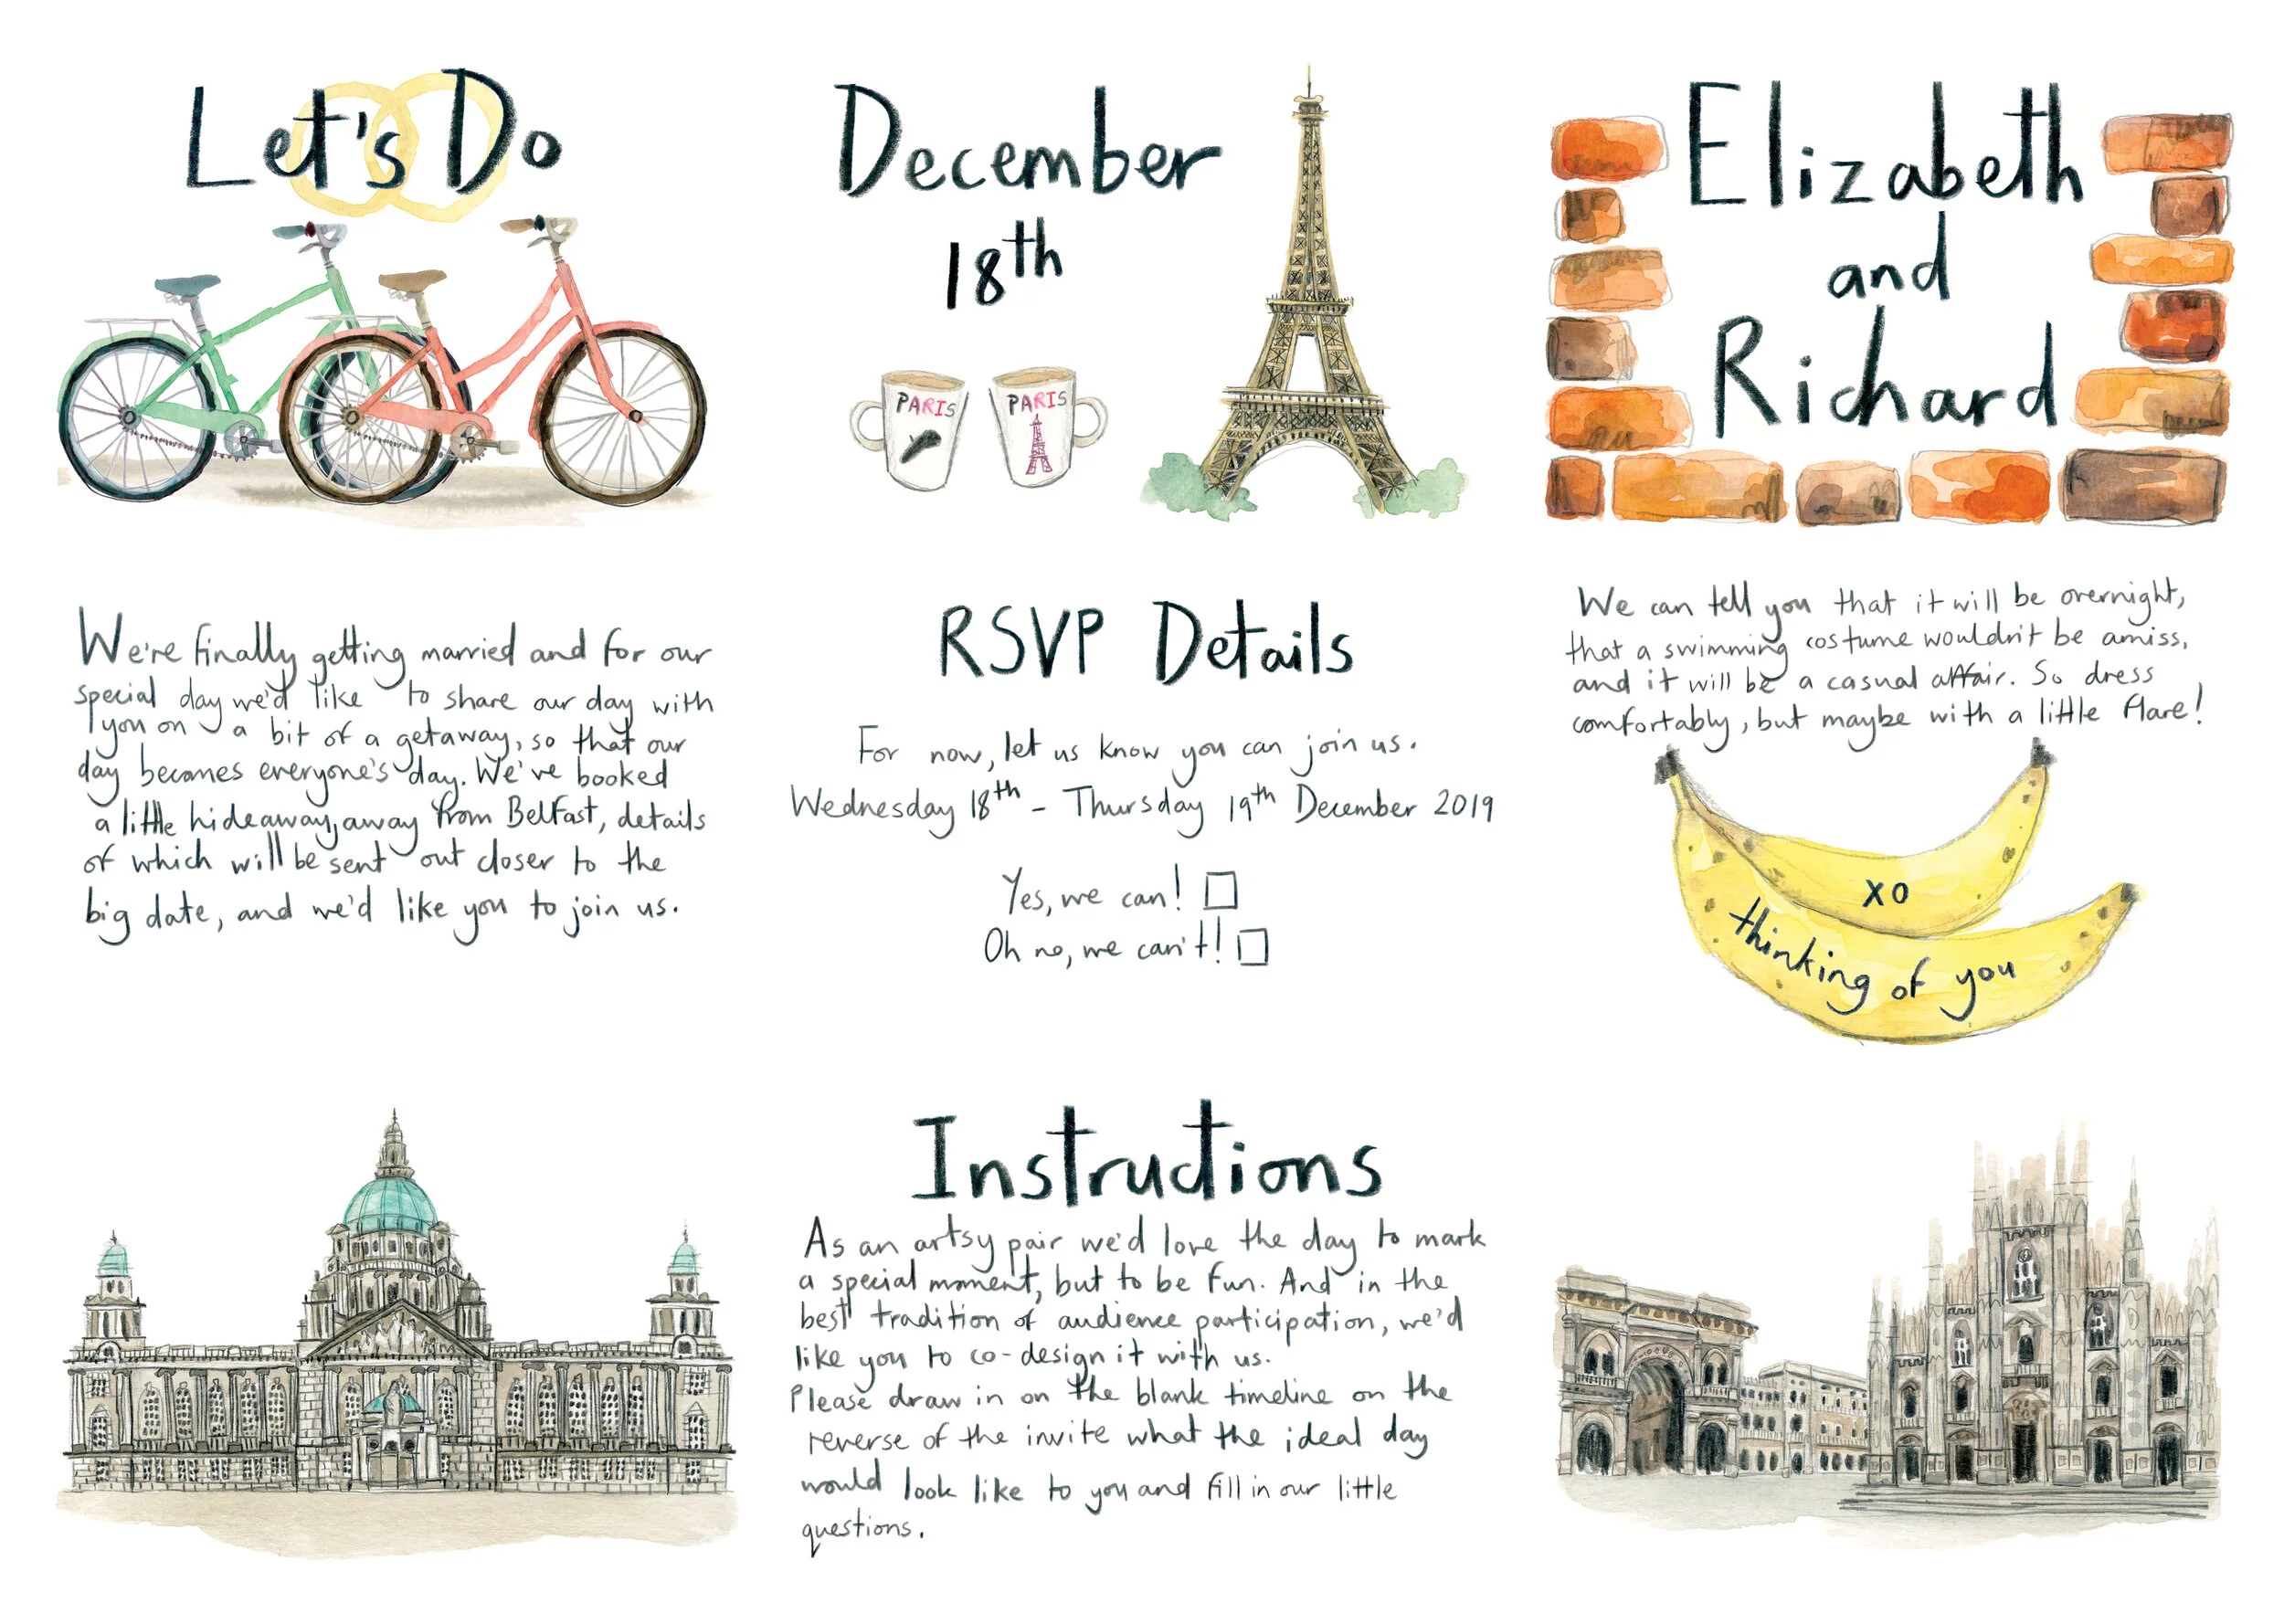 Let's Do
December
18th
PARIS
PARIS
Elizabeth
and
Richard
We're finally getting married and for our
special day we'd like to share our day with
you on a bit of a getaway, so that our
day becomes everyone's day. We've booked
a little hideaway, away from Belfast, details
of which will be sent out closer to the
big date, and we'd like you to join us.
RSVP Details
For now, let us know you can join us.
Wednesday 18th - Thursday 19th December 2019
Yes, we can!
Oh no, we can't!
We can tell you that it will be overnight,
that a swimming costume wouldn't be amiss,
and it will be a casual affair. So dress
comfortably, but maybe with a little flare!
XO
thinking of you
Instructions
As an artsy pair we'd love the day to mark
a special moment, but to be fun. And in the
best tradition of audience participation, we'd
like you to co-design it with us.
Please draw in on the blank timeline on the
reverse of the invite what the ideal day
would look like to you and fill in our little
questions.